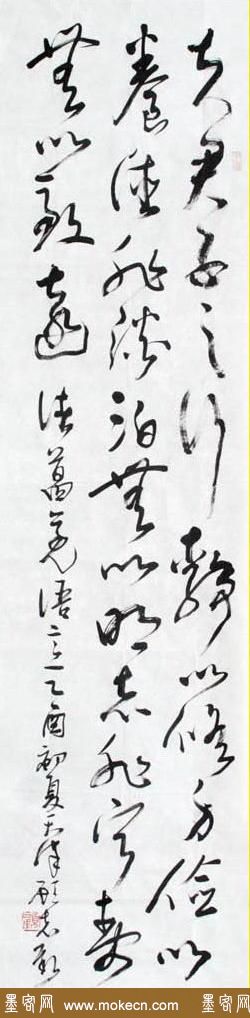 夫君子之行静以修身俭以
养德非澹泊无以明志非宁静
无以致远 诸葛亮语 乙酉初夏天津
墨客网 www.mokecn.com 墨客网